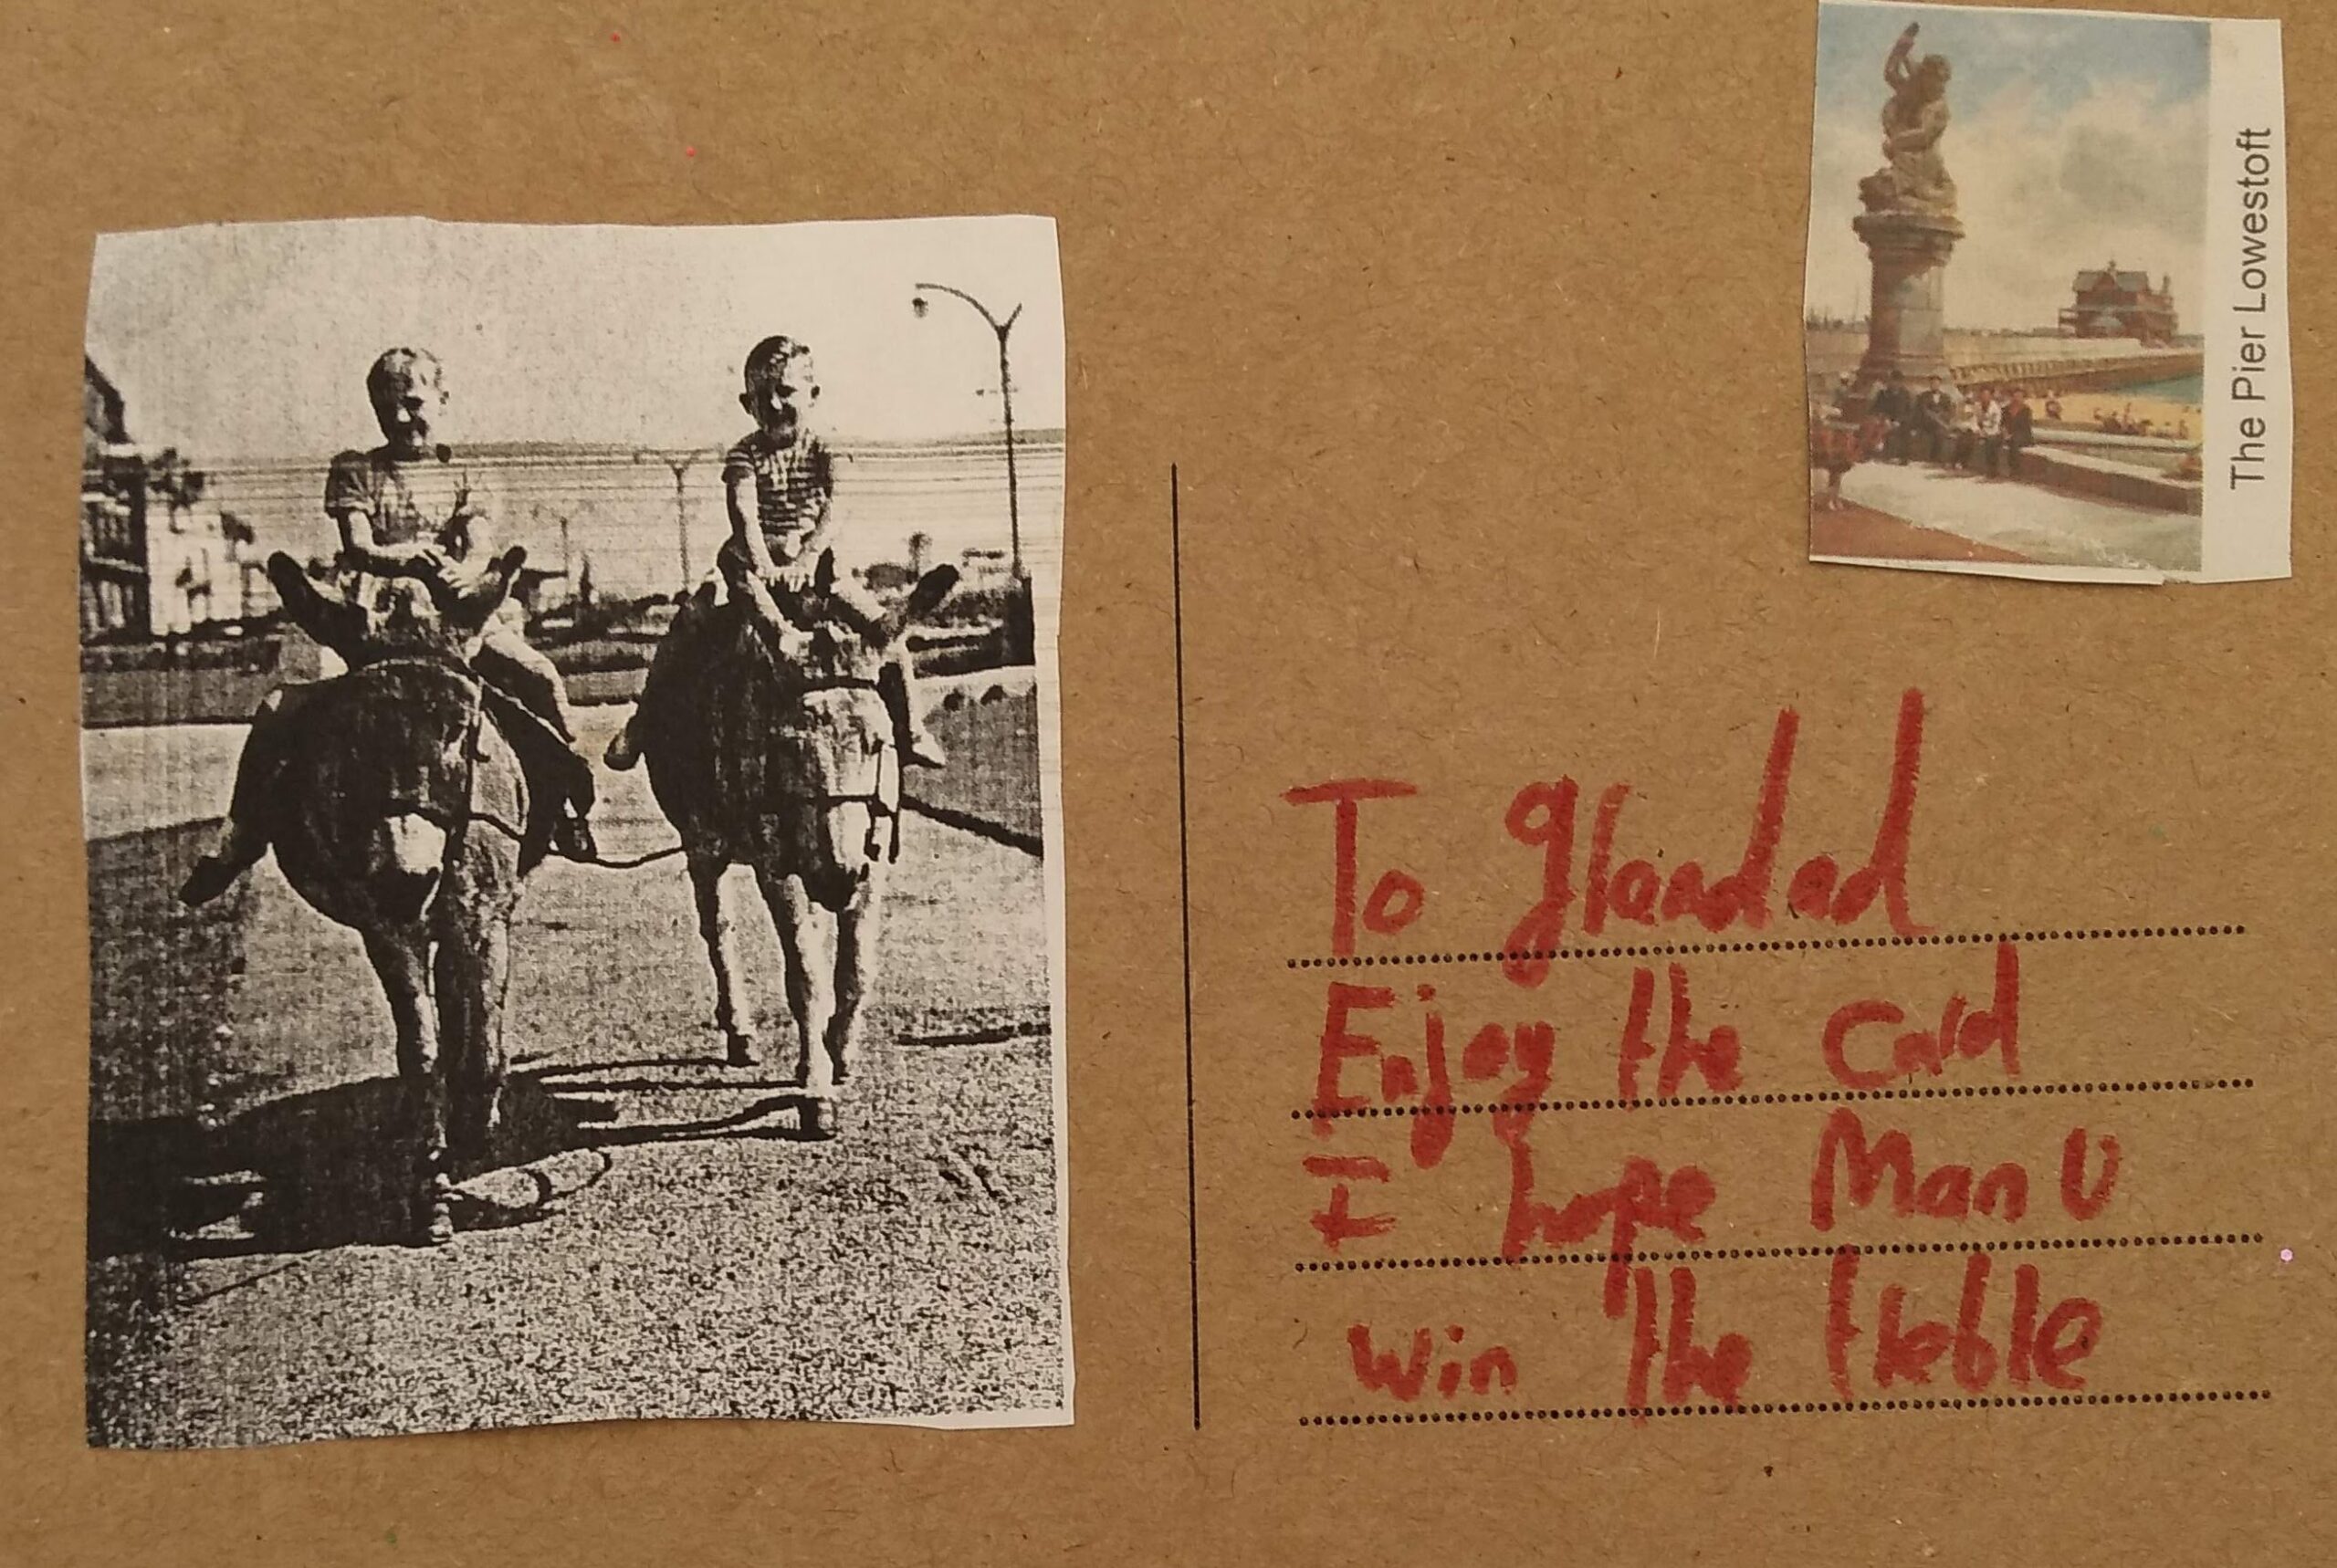 The Pier Lowestoft
To glandad
Enjoy the card
I hope Man U
win the treble